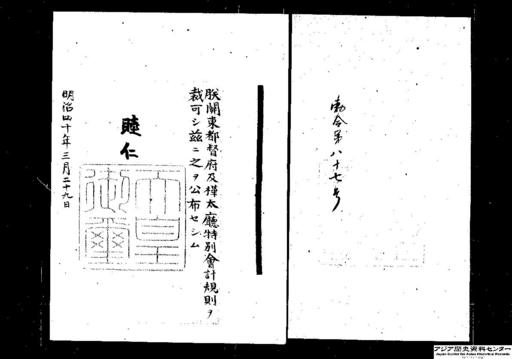 勅令第八十七号
朕關東都督府及樺太廳特別會計規則ヲ
裁可シ茲ニ之ヲ公布セシム
睦仁
天皇
御璽
明治四十年三月二十九日
アジア歴史資料センター
Japan Center for Asian Historical Records